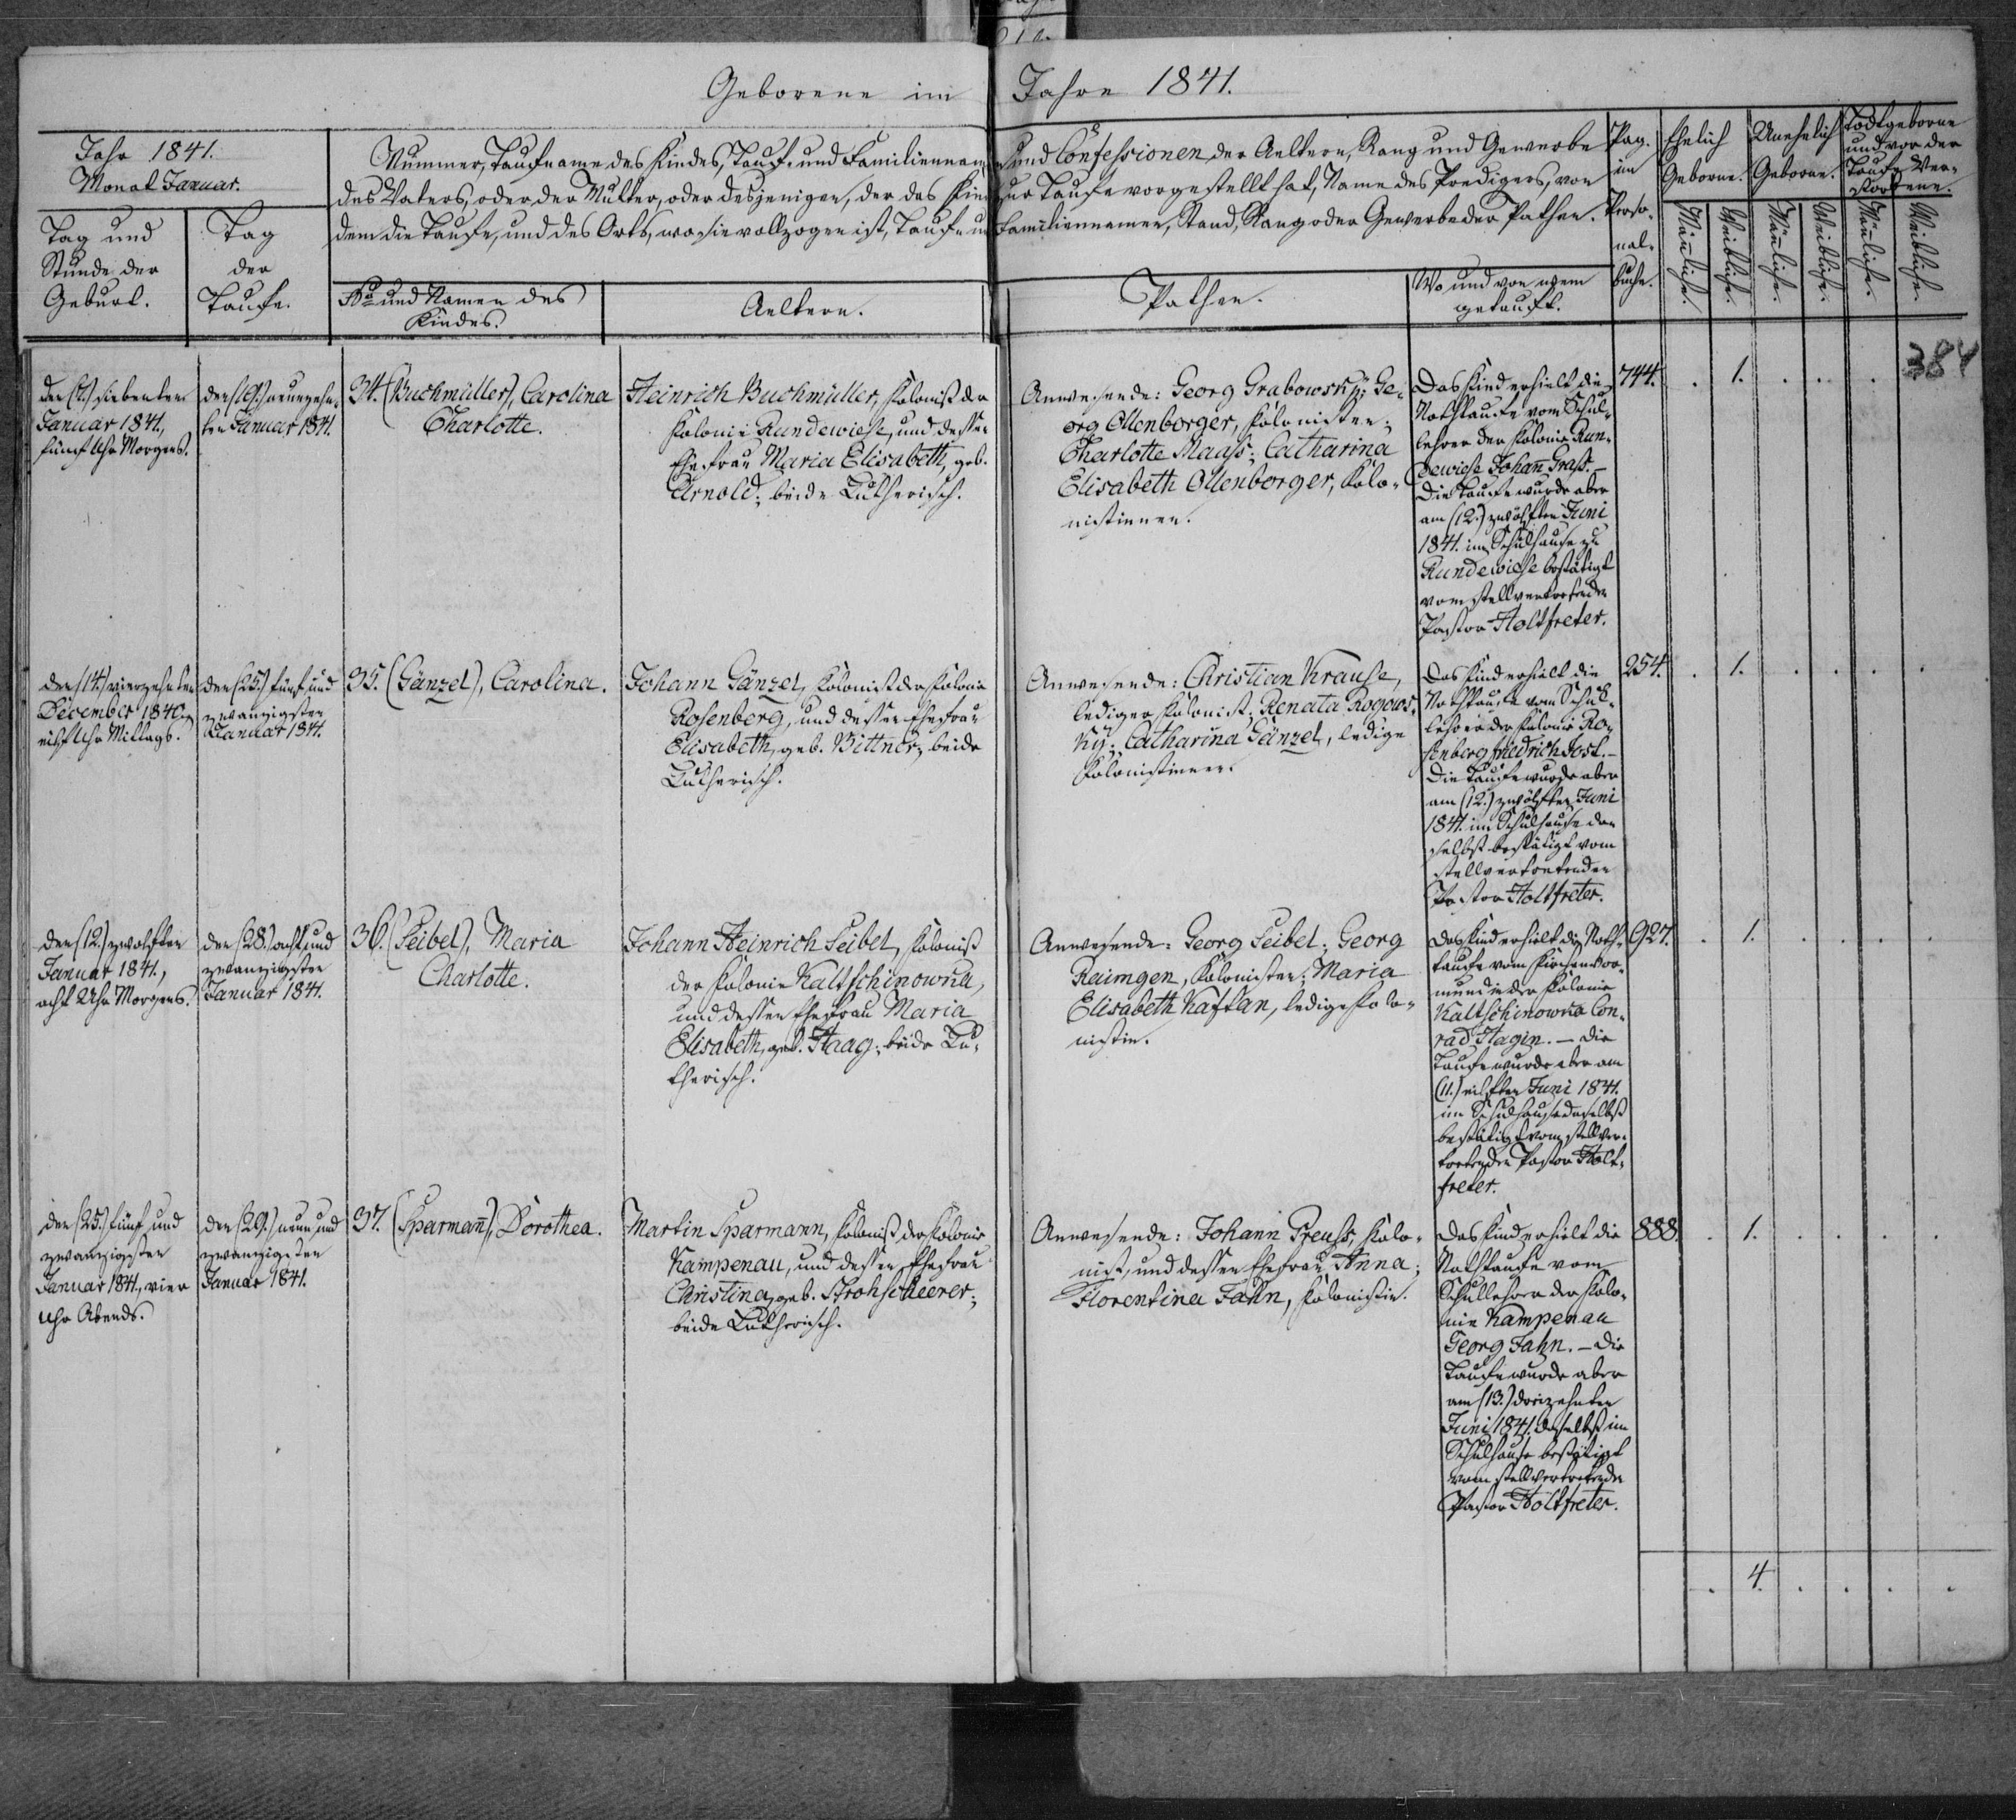 Geborene im Jahre 1841.
384
Jahr 1841.
Monat Januar.
Tag und
Stunde der
Geburt.
Tag
der
Taufe.
Nummer, Taufname des Kindes, Tauf- und Familiennamen und Confessionen der Aeltern, Rang und Gewerbe
des Vaters, oder der Mutter, oder desjenigen, der das Kind zur Taufe vorgestellt hat, Name des Predigers, von
dem die Taufe, und des Orts, wo sie vollzogen ist, Tauf- u Familiennamen, Stand, Rang oder Gewerbe der Pathen.
No und Namen des
Kindes.
Aeltern.
Pathen.
Wo und von wem
getauft.
Pag.
im
Perso-
nal-
buche.
Ehelich
Geborne.
Unehelich
Geborne.
Todtgeborne
und vor der
Taufe Ver-
storbene.
Mañliche.
Weibliche.
Mañliche.
Weibliche.
Mañliche.
Weibliche.
den (7.) siebenten
Januar 1841,
fünf Uhr Morgens.
den (19.) neunzehn-
ten Januar 1841.
34. (Buchmüller), Carolina
Charlotte.
Heinrich Buchmüller, Kolonist der
Kolonie Rundewiese, und dessen
Ehefrau Maria Elisabeth, geb.
Arnold; beide Lutherisch.
Anwesende: Georg Grabowsky; Ge-
org Ollenborger, Kolonisten;
Charlotte Maass; Catharina
Elisabeth Ollenborger, Kolo-
nistinnen.
Das Kind erhielt die
Nothtaufe vom Schul-
lehrer der Kolonie Run-
dewiese Johañ Grass. –
Die Taufe wurde aber
am (12.) zwölften Juni
1841. im Schulhause zu
Rundewiese bestätigt
vom stellvertretenden
Pastor Holtfreter.
744. . 1. . . .
den (14.) vierzehnten
December 1840,
eilf Uhr Mittags.
den (25.) fünf und
zwanzigsten
Januar 1841.
35. (Gänzel), Carolina.
Johann Gänzel, Kolonist der Kolonie
Rosenberg, und dessen Ehefrau
Elisabeth, geb. Bittner; beide
Lutherisch.
Anwesende: Christian Krause,
lediger Kolonist; Renata Rogows-
ky; Catharina Gänzel, ledige
Kolonistinnen.
Das Kind erhielt die
Nothtaufe vom Schul-
lehrer der Kolonie Ro-
senberg Friedrich Jost. –
Die Taufe wurde aber
am (12.) zwölften Juni
1841. im Schulhause da-
selbst bestätigt vom
stellvertretenden
Pastor Holtfreter.
254. . 1. . . . .
den (12.) zwölften
Januar 1841,
acht Uhr Morgens.
den (28.) acht und
zwanzigsten
Januar 1841.
36. (Seibel), Maria
Charlotte.
Johann Heinrich Seibel, Kolonist
der Kolonie Kaltschinowka,
und dessen Ehefrau Maria
Elisabeth, geb. Haag; beide Lu-
therisch.
Anwesende: Georg Seibel; Georg
Reimgen, Kolonisten; Maria
Elisabeth Kaftan, ledige Kolo-
nistin.
Das Kind erhielt die Noth-
taufe vom Kirchenvor-
mund in der Kolonie
Kaltschinowka Con-
rad Hagin. – Die
Taufe wurde aber am
(11.) eilften Juni 1841.
im Schulhause daselbst
bestätigt vom stellver-
tretenden Pastor Holt-
freter.
927. . 1. . . . .
den (25.) fünf und
zwanzigsten
Januar 1841, vier
Uhr Abends.
den (29.) neun und
zwanzigsten
Januar 1841.
37. (Sparmañ), Dorothea.
Martin Sparmann, Kolonist der Kolonie
Kampenau, und dessen Ehefrau
Christina, geb. Strohscheerer;
beide Lutherisch.
Anwesende: Johann Preuss, Kolo-
nist, und dessen Ehefrau Anna;
Florentina Jahn, Kolonistin.
Das Kind erhielt die
Nothtaufe vom
Schullehrer der Kolo-
nie Kampenau
Georg Jahn. – Die
Taufe wurde aber
am (13.) dreizehnten
Juni 1841. daselbst im
Schulhause bestätigt
vom stellvertretenden
Pastor Holtfreter.
888. . 1. . . . .
. 4. . . . .